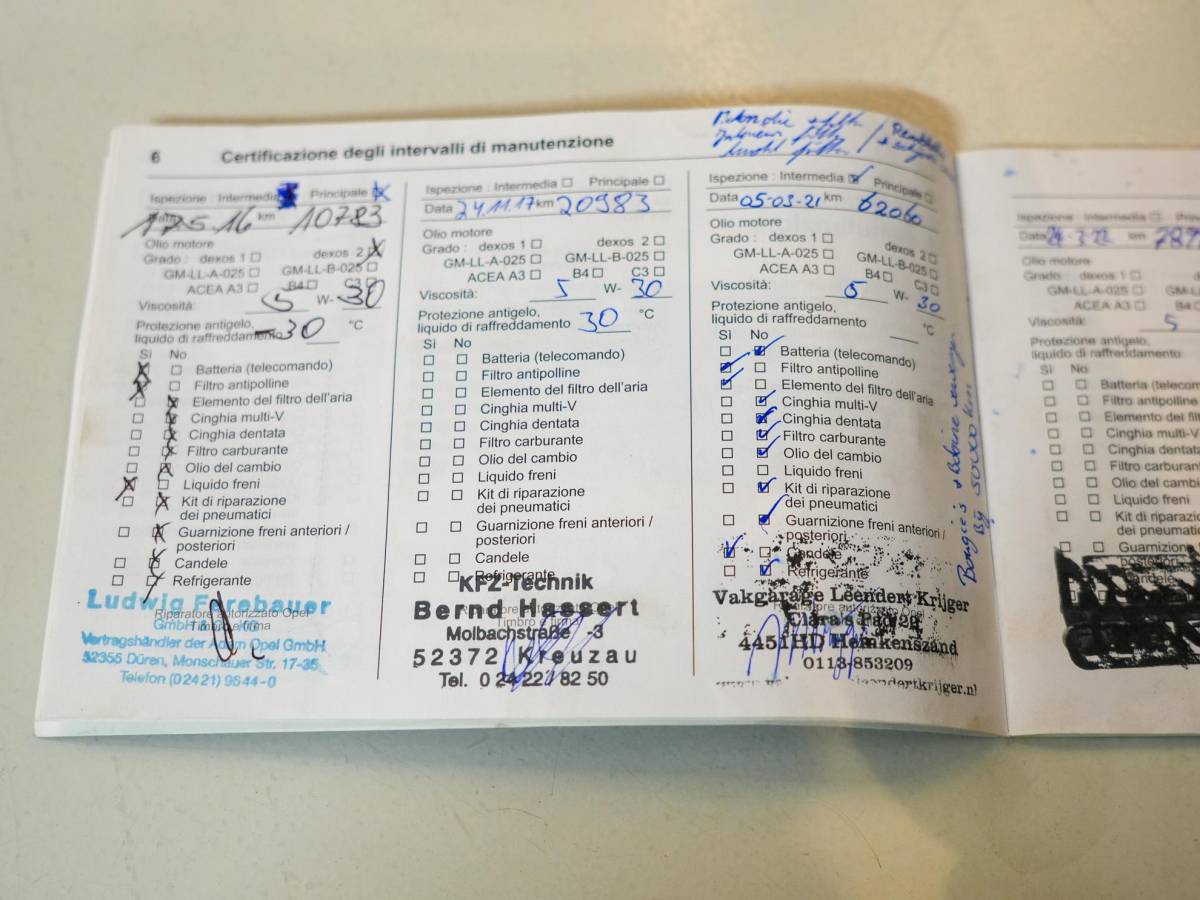 6 Certificazione degli intervalli di manutenzione
Ispezione : Intermedia Principale
Data 17.5.16 km 10783
Olio motore
Grado : dexos 1 dexos 2
GM-LL-A-025 GM-LL-B-025
ACEA A3 B4 C3
Viscosità: 5 W- 30
Protezione antigelo,
liquido di raffreddamento -30 °C
Sì No
Batteria (telecomando)
Filtro antipolline
Elemento del filtro dell'aria
Cinghia multi-V
Cinghia dentata
Filtro carburante
Olio del cambio
Liquido freni
Kit di riparazione
dei pneumatici
Guarnizione freni anteriori /
posteriori
Candele
Refrigerante
Riparatore autorizzato Opel
Timbro e firma
Ludwig
GmbH & Co. KG
Vertragshändler der Adam Opel GmbH
52355 Düren, Monschauer Str. 17-35
Telefon (02421) 9644-0
Ispezione : Intermedia Principale
Data 24.11.17 km 20983
Olio motore
Grado : dexos 1 dexos 2
GM-LL-A-025 GM-LL-B-025
ACEA A3 B4 C3
Viscosità: 5 W- 30
Protezione antigelo,
liquido di raffreddamento 30 °C
Sì No
Batteria (telecomando)
Filtro antipolline
Elemento del filtro dell'aria
Cinghia multi-V
Cinghia dentata
Filtro carburante
Olio del cambio
Liquido freni
Kit di riparazione
dei pneumatici
Guarnizione freni anteriori /
posteriori
Candele
Refrigerante
Riparatore autorizzato Opel
Timbro e firma
KFZ-Technik
Bernd Hassert
Molbachstraße 3
52372 Kreuzau
Tel. 0 24 22 / 82 50
Interieur filter
Ispezione : Intermedia Principale
Data 05-03-21 km 62060
Olio motore
Grado : dexos 1 dexos 2
GM-LL-A-025 GM-LL-B-025
ACEA A3 B4 C3
Viscosità: 5 W- 30
Protezione antigelo,
liquido di raffreddamento °C
Sì No
Batteria (telecomando)
Filtro antipolline
Elemento del filtro dell'aria
Cinghia multi-V
Cinghia dentata
Filtro carburante
Olio del cambio
Liquido freni
Kit di riparazione
dei pneumatici
Guarnizione freni anteriori /
posteriori
Candele
Refrigerante
Riparatore autorizzato Opel
Vakgarage Leendert Krijger
Clara's Pad 22
4451HD Heinkenszand
0113-853209
leendertkrijger.nl
Bougie's + Bobine vervangen
By 50000 km
Ispezione : Intermedia
Data 24-3-22 km
Olio motore
Grado : dexos 1
GM-LL-A-025
ACEA A3
Viscosità: 5
Protezione antigelo,
liquido di raffreddamento
Sì No
Batteria
Filtro antipolline
Elemento del
Cinghia multi-V
Cinghia dentata
Filtro
Olio del cambio
Liquido freni
Kit di
dei pneumatici